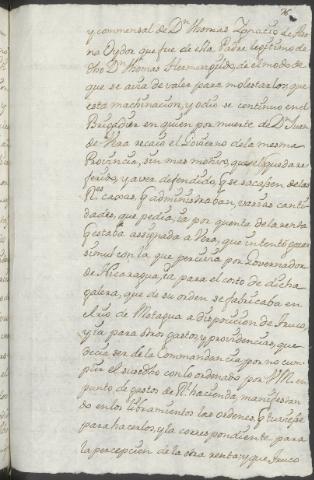 y commensal de Dn. Thomas Ignacio de Arana
na Oydor que fue de esta, Padre legitimo de
dho Dn. Thomas Hermenegildo, de el modo de
que se avia de valer para molestarlo; que
esta machinacion, y odio se continuo en el
Brigadier en quien por muerte de Dn. Juan
de Vera recaió el Govierno de la mesma
Provincia, sin mas motivo, que el queda re-
ferido, y aver defendido, q. se sacasen de las
Rs. caxas, q. administraban, varias canti-
dades, que pedia, ia por quenta de la renta
q. estaba assignada a Vera, que intentó gozar
simul con la que percivia por Governador
de Nicaragua, ia para el costo de dicha
galera, que de su orden se fabricaba en
el rio de Motagua a disposicion de
y ia para otros gastos, y providencias, que
decia ser de la Commandancia, por no cum-
plir el susodho con lo ordenado por V.M. en
punto de gastos de Rl. hacienda, manifestan-
do en los libramientos las ordenes, q. tuviesse
para hacerlos, y la correspondiente para
la percepcion de la otra renta; y que